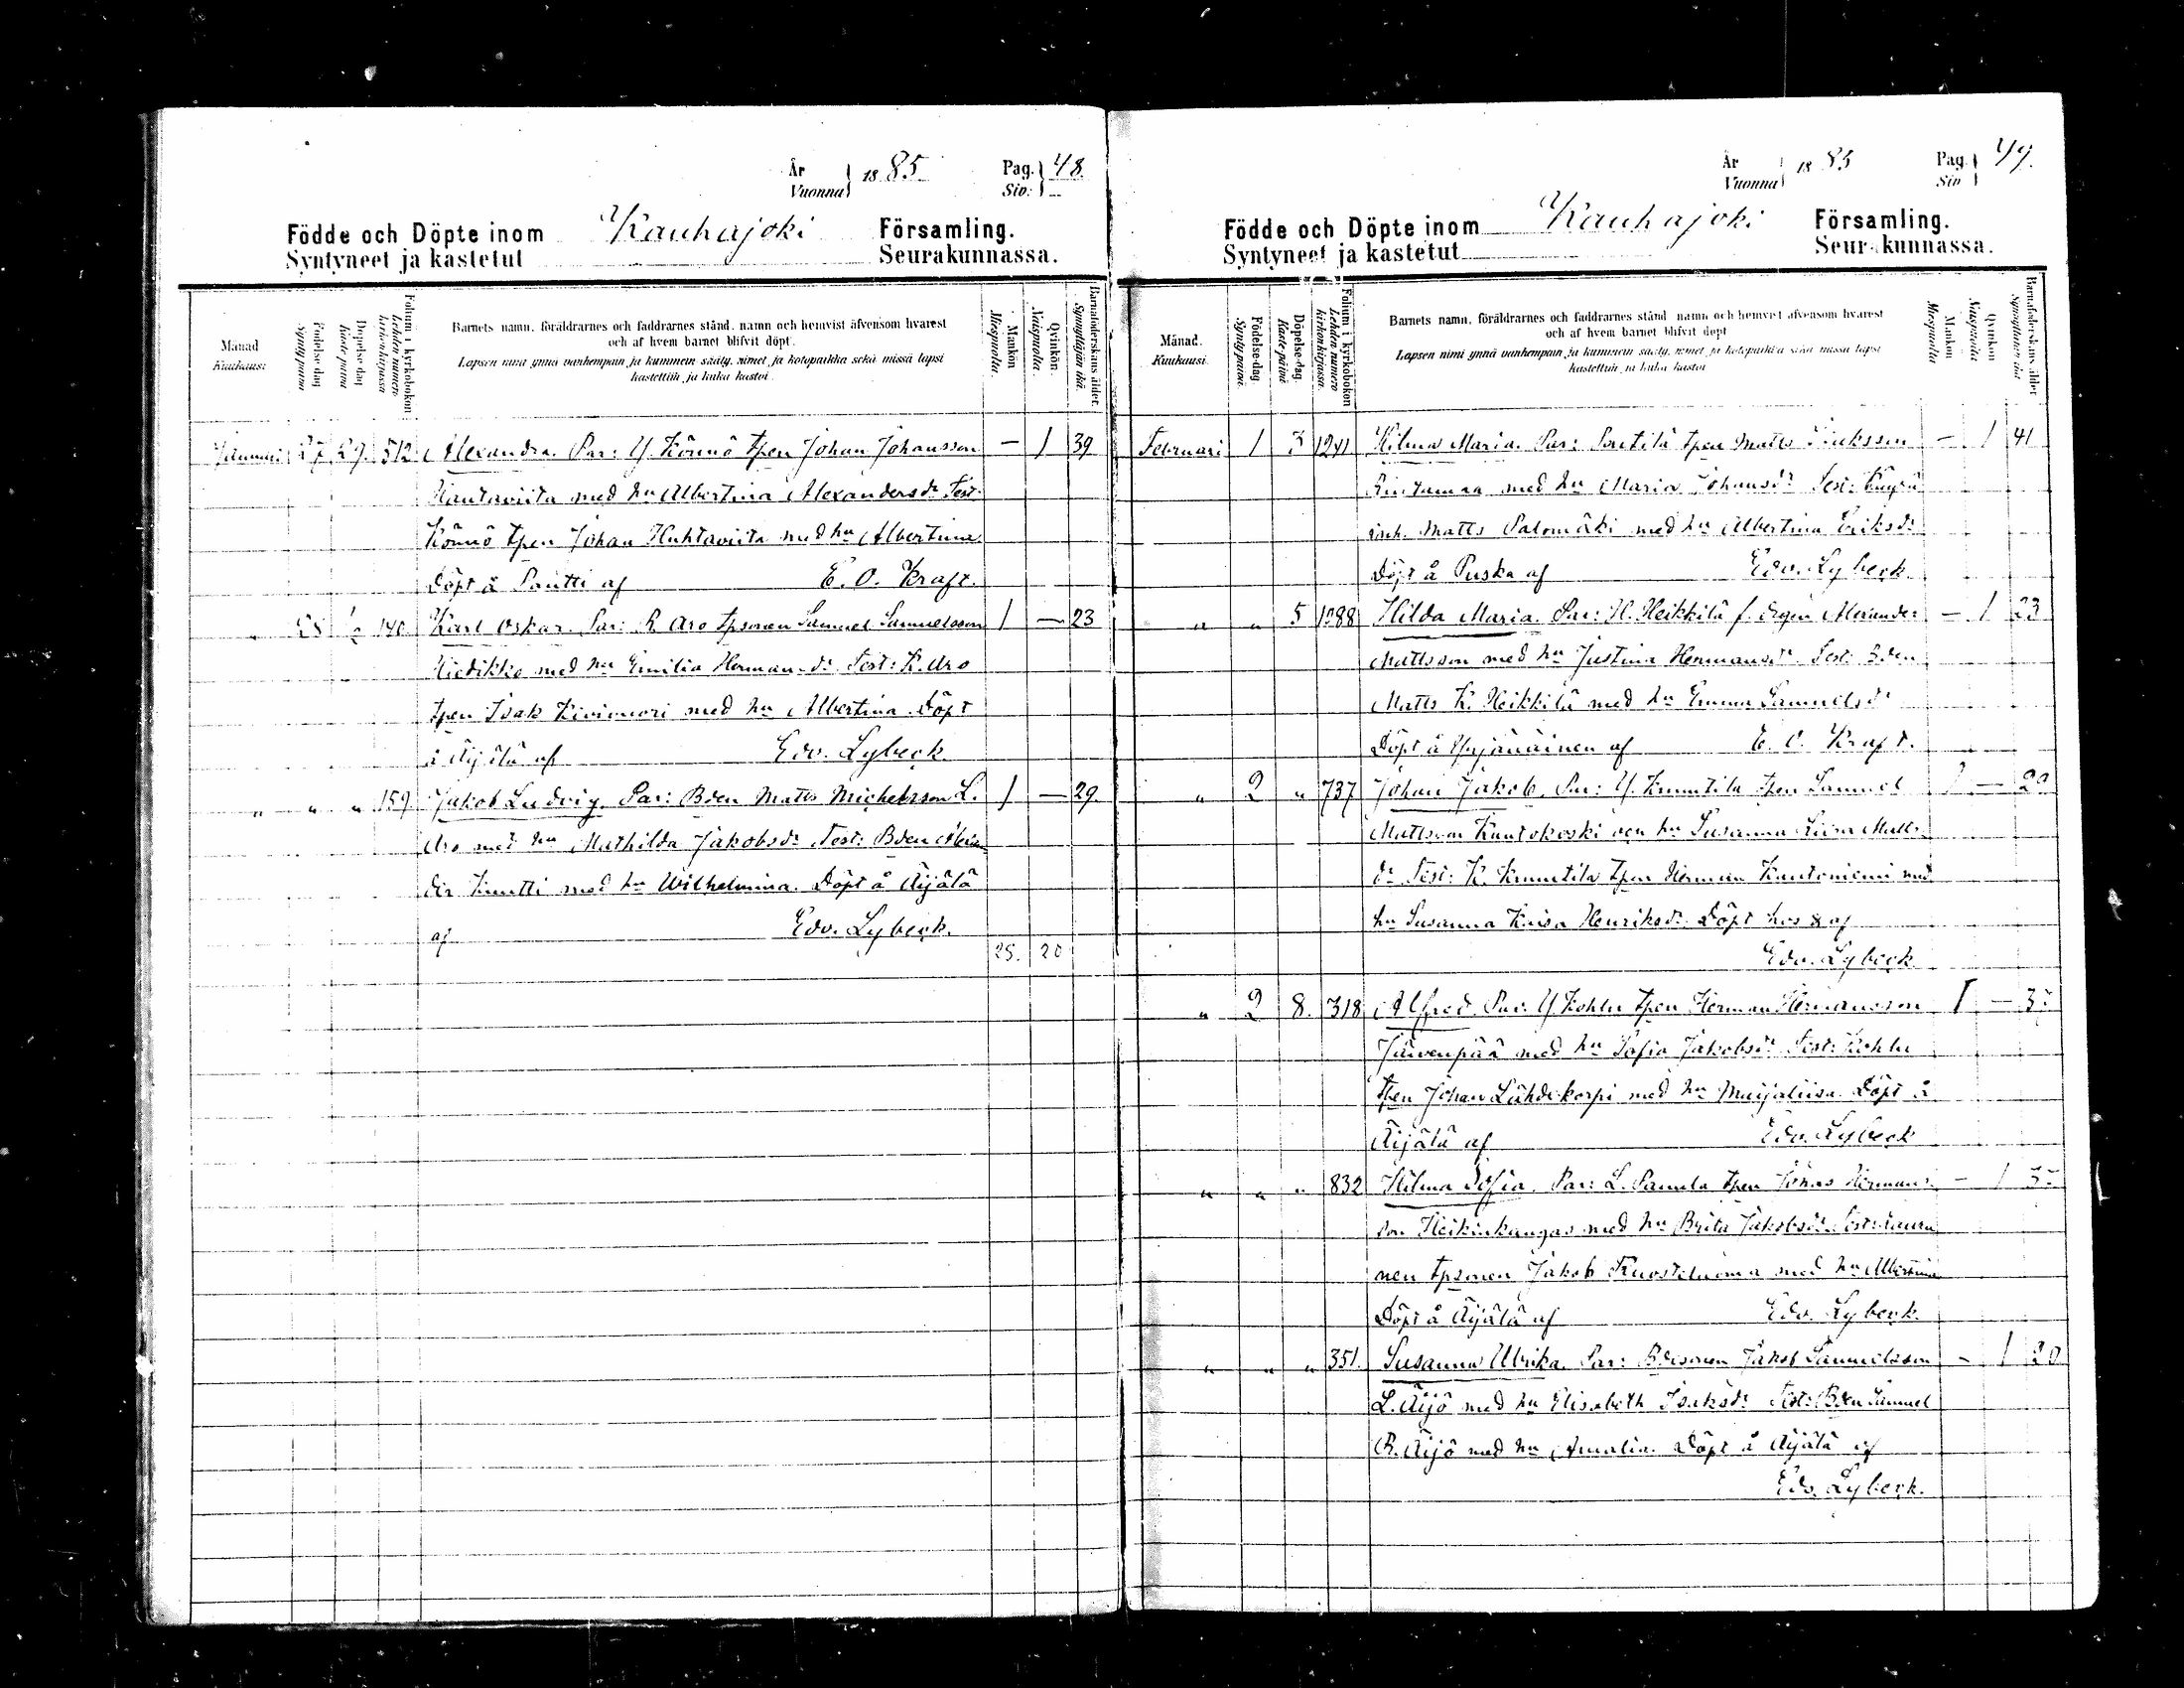 År 1885 Pag. 48.
Vuonna Siv.
Födde och Döpte inom Kauhajoki Församling.
Syntyneet ja kastetut Seurakunnassa.
Månad Kuukausi
Födelse-dag Syntypäivä
Döpelse-dag Kastepäivä
Folium i kyrkoboken Lehden numero kirkonkirjassa
Barnets namn, föräldrarnes och faddrarnes stånd, namn och hemvist äfvensom hvarest
och af hvem barnet blifvit döpt.
Lapsen nimi ynnä vanhempain ja kummein sääty, nimet ja kotopaikka sekä missä lapsi
kastettiin ja kuka kastoi.
Mankön Miespuolta
Qvinkön. Naispuolta
Barnaföderskans ålder. Synnyttäjän ikä
Januari 27 29 512 Alexandra. Par: Y. Könnö tpen Johan Johansson — 1 39
Hautaviita med hu Albertina Alexandersdr Test:
Könnö tpen Johan Huhtaviita med hu Albertina
Döpt å Pantti af E. O. Kraft.
" 28 1/2 140 Karl Oskar. Par: R. Aro tpsonen Samuel Samuelsson 1 — 23
med hu Emilia Hermansdr. Test: K. Aro
tpen Isak Kivivuori med hu Albertina. Döpt
å Äijälä af Edv. Lybeck.
" " " 159 Jakob Ludvig. Par: Bden Matts Michelsson L. 1 — 29.
Aro med hu Mathilda Jakobsdr Test: Bden Alexan
der Knutti med hu Wilhelmina. Döpt å Äijälä
af Edv. Lybeck.
25. 20
År 1885 Pag. 49.
Vuonna Siv
Födde och Döpte inom Kauhajoki Församling.
Syntyneet ja kastetut Seurakunnassa.
Månad. Kuukausi.
Födelse-dag. Syntypäivä.
Döpelse-dag. Kastepäivä
Folium i kyrkoboken Lehden numero kirkonkirjassa.
Barnets namn, föräldrarnes och faddrarnes stånd, namn och hemvist äfvensom hvarest
och af hvem barnet blifvit döpt
Lapsen nimi ynnä vanhempain ja kummein sääty, nimet ja kotopaikka sekä missä lapsi
kastettiin ja kuka kastoi
Mankön Miespuolta
Qvinkön Naispuolta
Barnaföderskans ålder Synnyttäjän ikä
Februari 1 3 1241 Hilma Maria. Par: Pentilä tpen Matts — 1 41
Rintamaa med hu Maria Johansdr Test:
inh. Matts Palomäki med hu Albertina Eriksdr
Döpt å Puska af Edv. Lybeck.
" " 5 1088 Hilda Maria. Par: H. Heikkilä f. Alexander — 1 23
Mattsson med hu Justina Hermansdr Test: Bden
Matts K. Heikkilä med hu Emma Samuelsdr
Döpt å af E. O. Kraft.
" 2 " 737 Johan Jakob. Par: Y. Knuutila tpen Samuel 1 —
Mattsson Kantokoski och hu Susanna Liisa Matts
dr Test: K. Knuutila tpen Herman Kantoniemi med
hu Susanna Kaisa Henriksdr. Döpt hos & af
Edv. Lybeck.
" 2 8. 318 Alfred. Par: Y. Kohlu tpen Herman Hermansson 1 —
Järvenpää med hu Sofia Jakobsdr Test: Kohlu
tpen Johan Lähdekorpi med hu Maijaliisa. Döpt å
Äijälä af Edv. Lybeck
" " " 832 Hilma Sofia. Par: L. Panula tpen Jonas Hermans — 1
son Heikinkangas med hu Brita Jakobsdr Test:
nen tpsonen Jakob med hu Albertina
Döpt å Äijälä af Edv. Lybeck.
" " " 351. Susanna Ulrika. Par: Bdesonen Jakob Samuelsson — 1 20
L. Äijö med hu Elisabeth Isaksdr Test: Bden Samuel
R. Äijö med hu Amalia. Döpt å Äijälä af
Edv. Lybeck.